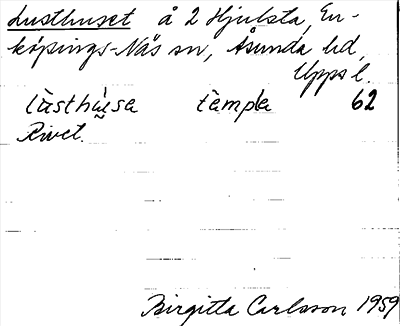 Lusthuset å 2 Hjulsta, En-
köpings-Näs sn, Åsunda hd,
Upps l.
làsthṵ̀sa tämpla 62
Rivet.
Birgitta Carlsson 1959